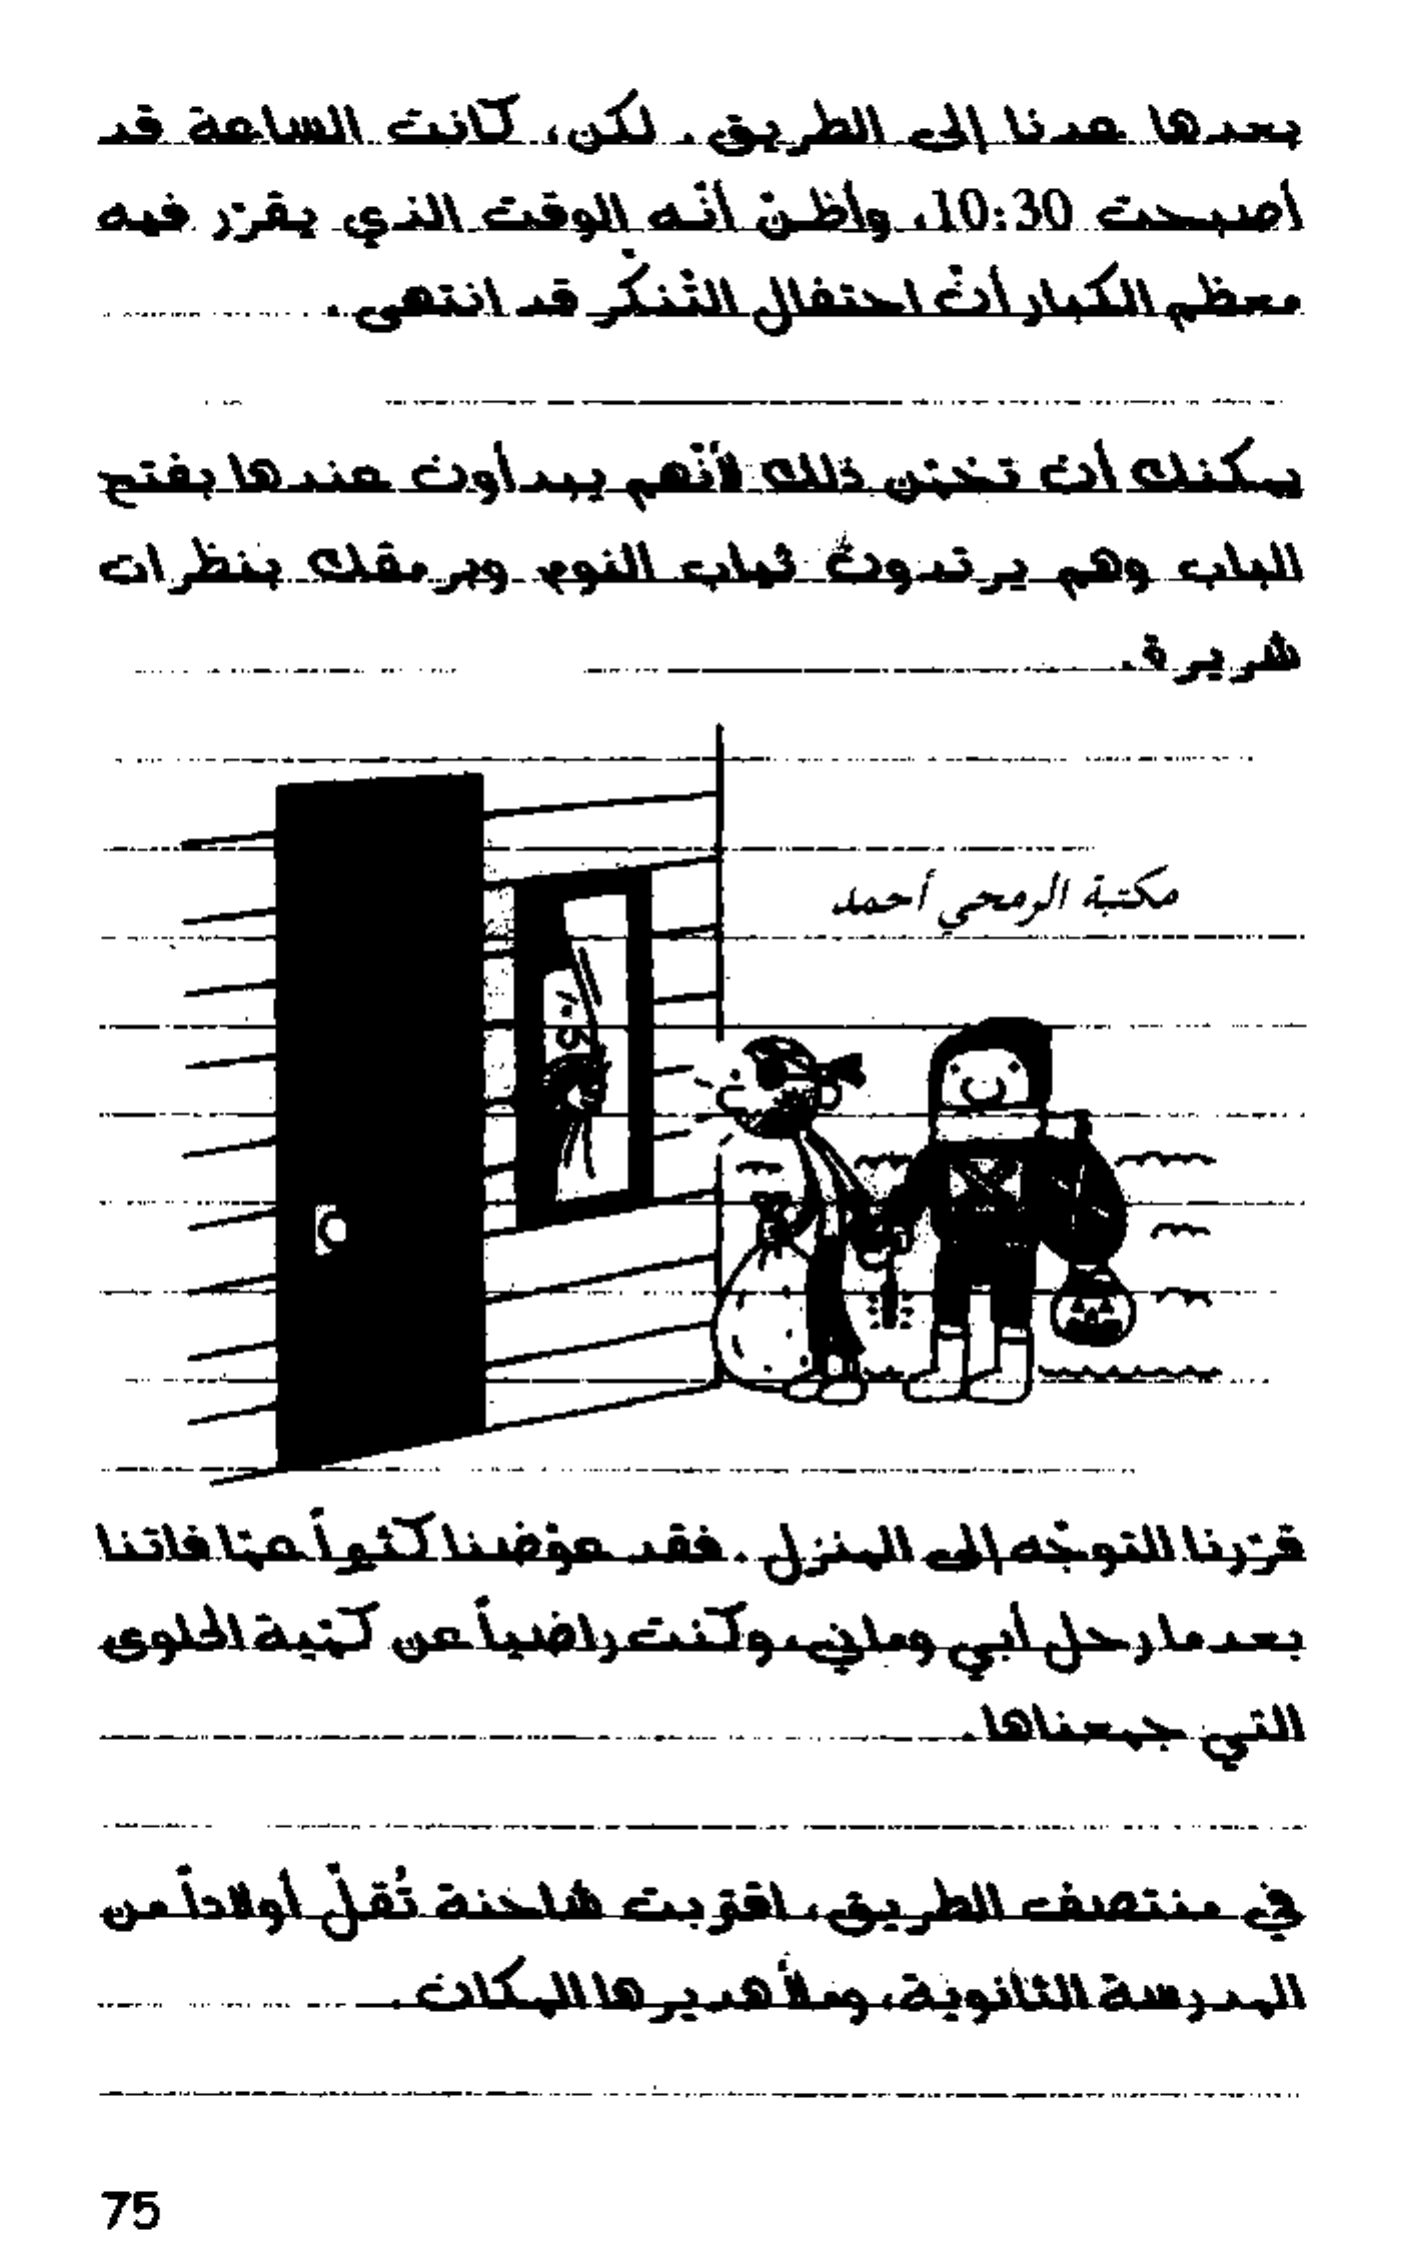 بعدها عدنا إلى الطريق. لكن، كانت الساعة قد
أصبحت 10:30، وأظنّ أنّه الوقت الذي يقرّر فيه
معظم الكبار أنّ احتفال التّنكّر قد انتهى.
يمكنك أن تخمّن ذلك لأنّهم يبدأون عندها بفتح
الباب وهم يرتدون ثياب النوم وبرمقك بنظرات
شريرة.
مكتبة الرمحي أحمد
قرّرنا التوجّه إلى المنزل. فقد عوّضنا كثيراً عمّا فاتنا
بعدما رحل أبي وماني، وكنت راضياً عن كمّية الحلوى
التي جمعناها.
في منتصف الطريق، اقتربت شاحنة تُقلّ أولاداً من
المدرسة الثانوية، وملأ هديرها المكان.
75